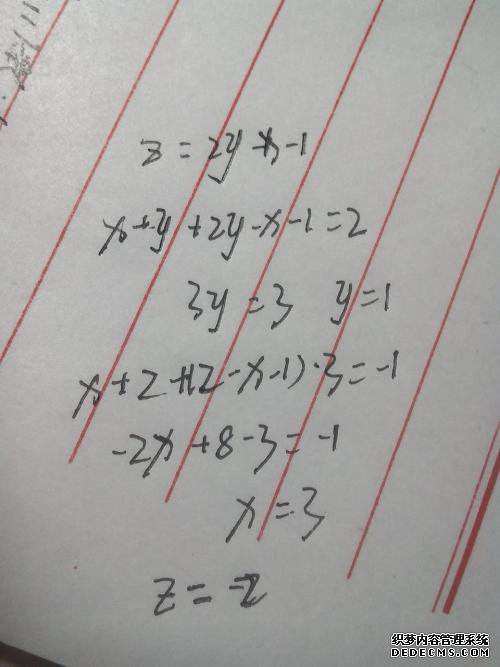 z = 2y - x - 1
x + y + 2y - x - 1 = 2
3y = 3 y = 1
x + 2 + (2 - x - 1)·3 = -1
-2x + 8 - 3 = -1
x = 3
z = -2
织梦内容管理系统
DEDECMS.COM